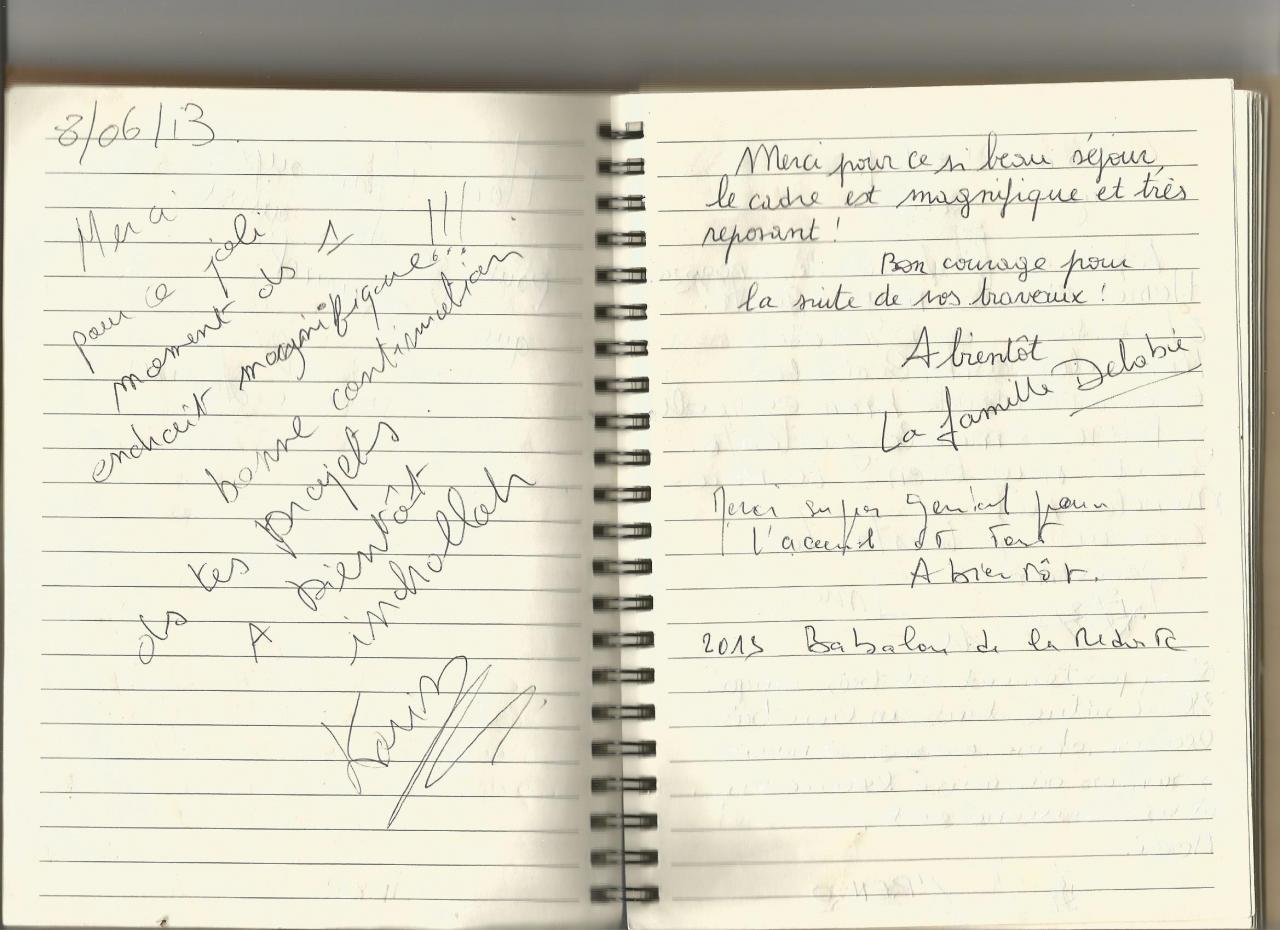 8/06/13
Merci
pour ce joli
moment ds 1
endroit magnifique... !!!
bonne continuation
ds tes projets
A bientôt
inchallah
Merci pour ce si beau séjour,
le cadre est magnifique et très
reposant !
Bon courage pour
la suite de vos travaux !
A bientôt
La famille Delobié
Merci super génial pour
l'accueil et tout
A bientôt.
2013 Babalou de la